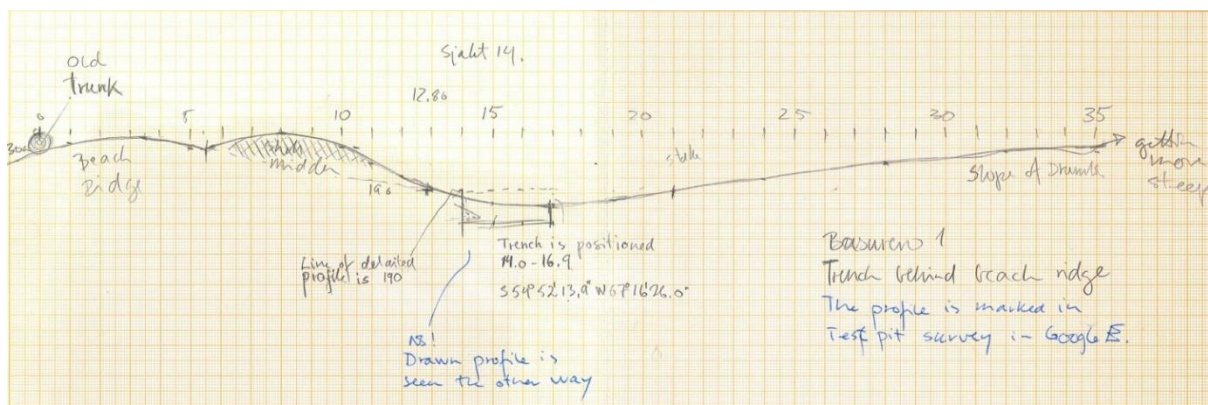 Sjakt 14.
Old
Trunk
12.80
0
5
10
15
20
25
30
35
Beach
Ridge
midden
190
stake
Slope of Drumlin
getting
more
steep
Line of detailed
profile is 190
Trench is positioned
14.0-16.9
S54°52'13,9" W67°16'26.0"
NB!
Drawn profile is
seen the other way
Basurero 1
Trench behind beach ridge
The profile is marked in
Test pit survey in Google E.